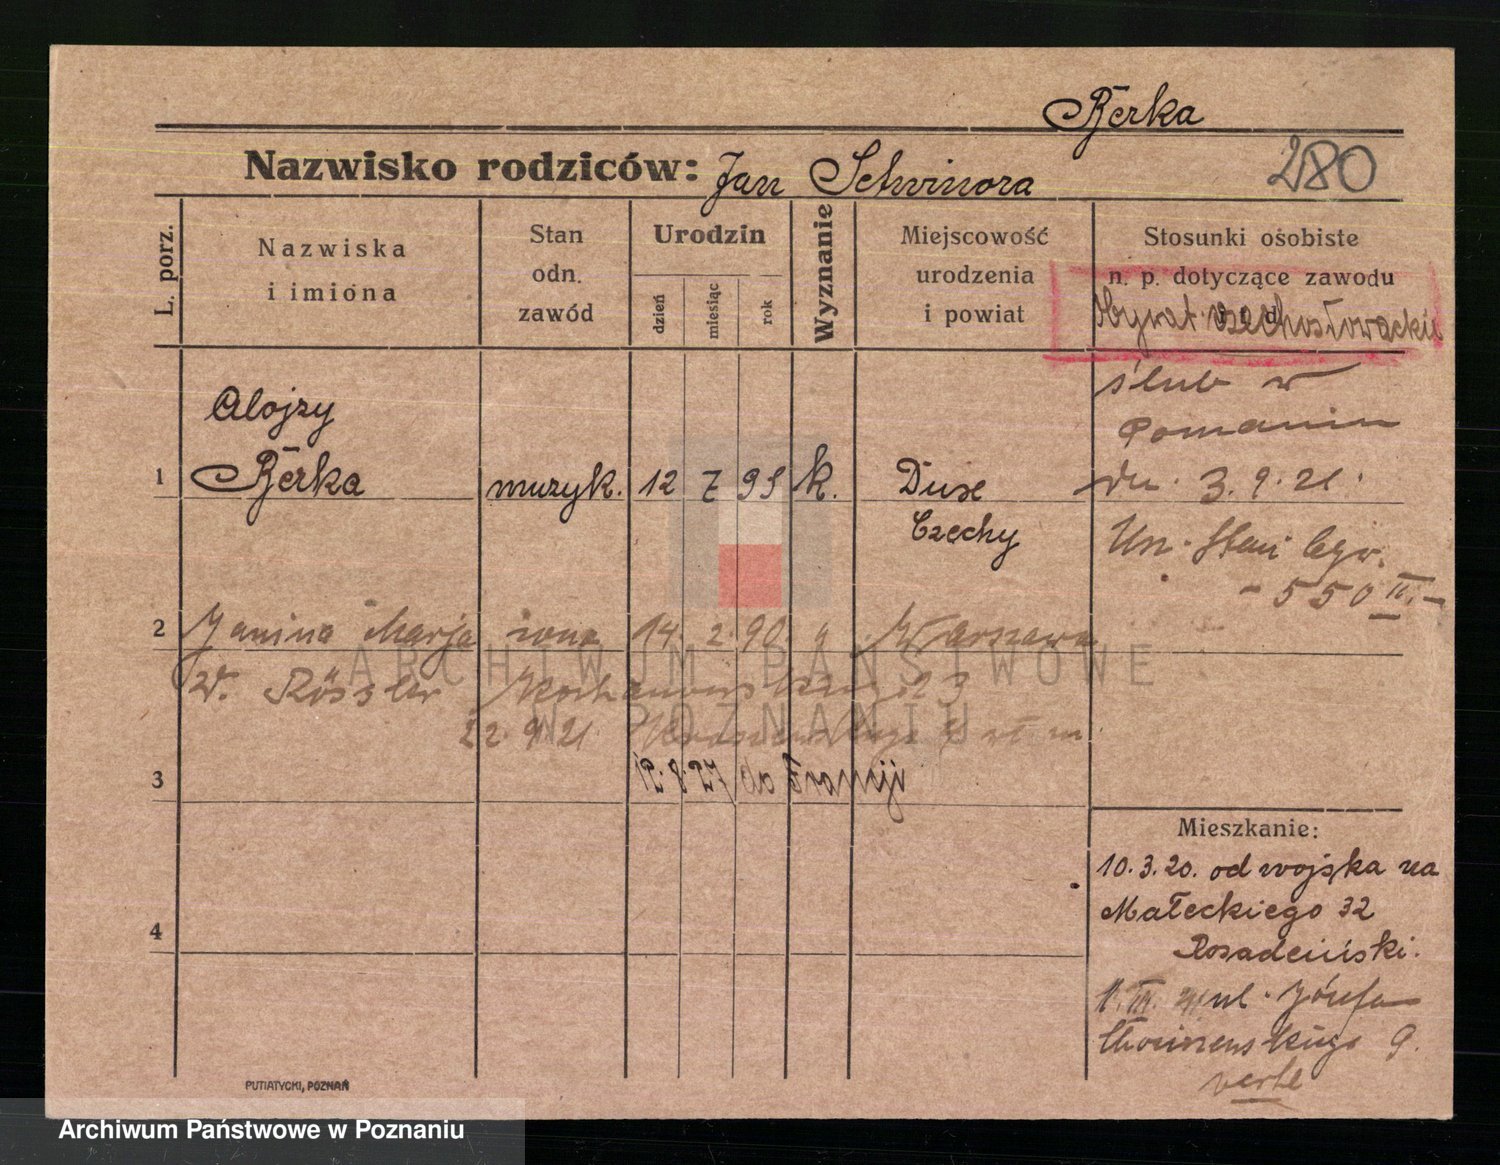 Řerka
Nazwisko rodziców: Jan Schwinora
280
L. porz.
Nazwiska i imiona
Stan odn. zawód
Urodzin
dzień miesiąc rok
Wyznanie
Miejscowość urodzenia i powiat
Stosunki osobiste
n. p. dotyczące zawodu
Obywat. czechosłowacki
Alojzy
1 Řerka muzyk. 12 7 95 k. Duxe
Czechy
ślub w
Poznaniu
dn. 3.9.21.
Un. Stan
- 550 II. -
2 Janina Marja żona 14. 2. 90. " Warszawa
Rössler
22.9.21
3
19.8.27 do
4
Mieszkanie:
10.3.20. od wojska na
Małeckiego 32
ul. Józefa
9.
verte
PUTIATYCKI, POZNAŃ
ARCHIWUM PAŃSTWOWE
W POZNANIU
Archiwum Państwowe w Poznaniu